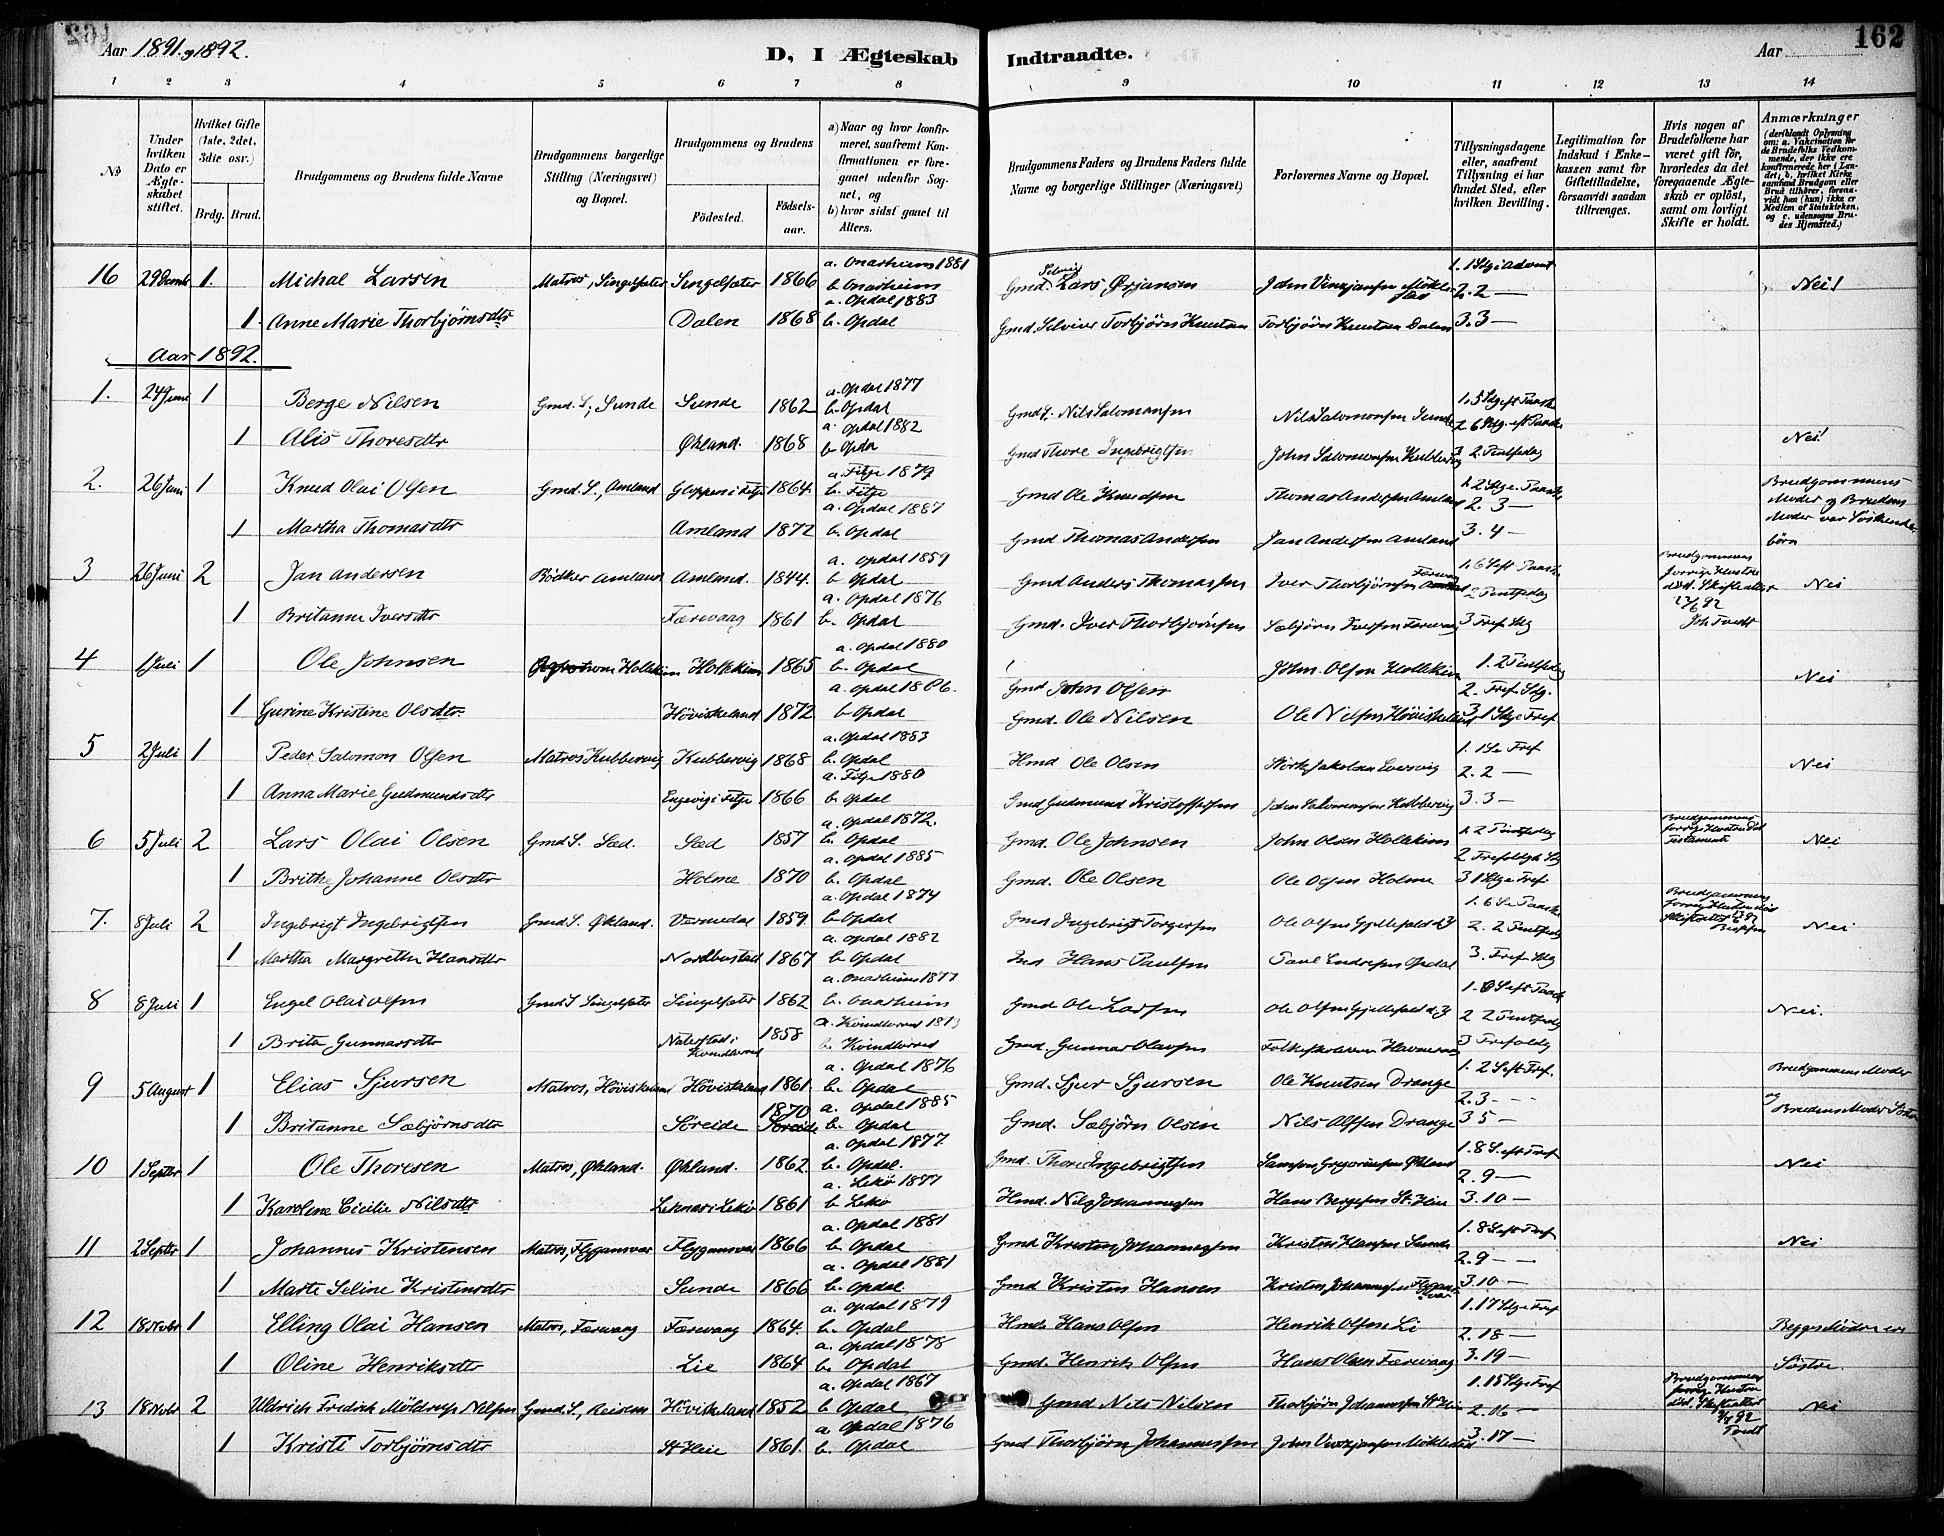 Aar 1891 og 1892.
D, I Ægteskab Indtraadte.
Aar
162
1 2 3 4 5 6 7 8 9 10 11 12 13 14
No
Under hvilken Dato er Ægteskabet stiftet.
Hvilket Gifte (1ste, 2det, 3die osv.)
Brdg. Brud.
Brudgommens og Brudens fulde Navne
Brudgommens borgerlige Stilling (Næringsvei) og Bopæl.
Brudgommens og Brudens
Fødested.
Fødselsaar.
a) Naar og hvor konfirmeret, saafremt Konfirmationen er foregaaet udenfor Sognet, og
b) hvor sidst gaaet til Alters.
Brudgommens Faders og Brudens Faders fulde Navne og borgerlige Stillinger (Næringsvei)
Forlovernes Navne og Bopæl.
Tillysningsdagene eller, saafremt Tillysning ei har fundet Sted, efter hvilken Bevilling.
Legitimation for Indskud i Enkekassen samt for Giftetilladelse, forsaavidt saadan tiltrænges.
Hvis nogen af Brudefolkene har været gift før, hvorledes da det foregaaende Ægteskab er opløst, samt om lovligt Skifte er holdt.
Anmærkninger (deriblandt Oplysning om: a. Vakcination for de Brudefolks Vedkommende, der ikke ere konfirmerede her i Landet; b. hvilket Kirkesamfund Brudgom eller Brud tilhører, forsaavidt han (hun) ikke er Medlem af Statskirken, og c. udensogns Brudes Hjemsted.)
16 1. Michal Larsen Matros, Singelsæter Singelsæter 1866 a. Onarheim 1881 b. Onarheim Gmd. Selveier Lars Ørjansen 1. 1 Sdg i Advent 2. 2 — Nei!
1. Anne Marie Thorbjørnsdtr Dalen 1868 a. Opdal 1883 b. Opdal Gmd. Selveier Torbjørn Knutsen Torbjørn Knutsen Dalen 3. 3 —
Aar 1892.
1. 24 Juni 1 Berge Nilsen Gmd. S., Sunde Sunde 1862 a. Opdal 1877 b. Opdal Gmd S. Nils Salomonsen Nils Salomonsen Sunde
1 Alis Thoresdtr Økland. 1868 a. Opdal 1882 b. Opda Gmd Thore Ingebrigtsen John Salomonsen Kubbervig Nei!
2. 26 Juni 1 Knud Olai Olsen Gmd. S., Amland Gloppen i Fitje 1864. a. Fitje 1879 b. Fitje Gmd Ole Knudsen Thomas Andersen Amland 2. 3 — Brudgommens Moder og Brudens Moder var Søskendebørn
1 Martha Thomasdtr Amland 1872 a. Opdal 1887 b. Opdal Gmd Thomas Andersen Jan Andersen Amland 3. 4 —
3 26 Juni 2 Jan Andersen Bødker Amland Amland. 1844. a. Opdal 1859 b. Opdal Gmd Anders Thomassen Iver Thorbjørnsen Færevaag Nei
1 Britanne Iversdtr Færevaag 1861 a. Opdal 1876 b. Opdal Gmd. Iver Thorbjørnsen Sæbjørn Iversen Færevaag
4 1 Juli 1 Ole Johnsen Hollekim Hollekim 1865 a. Opdal 1880 b. Opdal Gmd John Olsen John Olsen Hollekim Nei
1 Gurine Kristine Olsdtr. Høviskeland 1872 b. Opdal Gmd. Ole Nilsen Ole Nilsen Høviskeland
5 2 Juli 1 Peder Salomon Olsen Matros Kubbervig Kubbervig 1868 a. Opdal 1883 b. Opdal Hmd Ole Olsen 2. 2 — Nei
1 Anna Marie Gudmundsdtr Engevig i Fitje 1866 a. Fitje 1880 b. Opdal Gmd Gudmund Kristoffersen John Salomonsen Kubbervig 3. 3 —
6 5 Juli 2 Lars Olai Olsen Gmd S. Sæd. Sæd 1857 a. Opdal 1872. b. Opdal Gmd. Ole Johnsen John Olsen Hollekim Nei
1 Brithe Johanne Olsdtr Holme 1870 a. Opdal 1885 b. Opdal Gmd. Ole Olsen Ole Olsen Holme
7. 8 Juli 2 Ingebrigt Ingebrigtsen Gmd S. Økland. Værnedal 1859 a. Opdal 1874 b. Opdal Gmd Ingebrigt Torgersen Nei
1 Martha Margrethe Hansdtr Nordhustad 1867 a. Opdal 1882 b. Opdal Hans Paulsen Paul Endresen Opdal
8 8 Juli 1 Engel Olai Olsen Gmd S Singelsæter Singelsæter 1862 a. Onarheim 1877 b. Onarheim Gmd Ole Larsen Nei.
1 Brita Gunnarsdtr Naterstad i Kvindherred 1858 b. Kvindherred Gmd. Gunnar Olavsen
9 5 August 1 Elias Sjursen Matros, Høviskeland Høviskeland 1861. a. Opdal 1876 b. Opdal Gmd. Sjur Sjursen Ole Knutsen Drange Brudgommens Moder
1 Britanne Sæbjørnsdtr Søreide 1870 a. Opdal 1885 b. Opdal Gmd. Sæbjørn Olsen Nils Alfsen Drange 2. 3 — 3 5 — og Brudens Moder
10 1 Septbr 1 Ole Thoresen Matros, Økland. Økland. 1862 a. Opdal 1877. b. Opdal. Gmd. Thore Ingebrigtsen Samson Gregoriussen Økland 2. 9 — Nei
1 Karoline Cicilie Nilsdtr Leknæs i Lekø 1861 a. Lekø 1877 b. Lekø Hmd. Nils Johannessen Hans Bergesen St. Heie 3. 10 —
11 2 Septbr 1 Johannes Kristensen Matros, Flygansvær Flygansvær 1866 a. Opdal 1881 b. Opdal Gmd Kristen Johannessen Kristen Hansen Sunde 2. 9 — Nei
1 Marte Seline Kristensdtr Sunde 1866 a. Opdal 1881 b. Opdal Gmd Kristen Hansen Kristen Johannessen Flygansvær 3. 10 —
12 18 Novbr 1 Elling Olai Hansen Matros, Færevaag Færevaag 1864. a. Opdal 1879 b. Opdal Hmd. Hans Olsen Henrik Olsen Li 2. 18 —
1 Oline Henriksdtr Lie 1864 a. Opdal 1878 b. Opdal Gmd. Henrik Olsen Hans Olsen Færevaag 3. 19 — Søstre.
13 18 Novbr 2 Uldrich Fredrich Møldrup Nilsen Gmd. S., Reisen Høviskeland 1852 a. Opdal 1867 b. Opdal Gmd Nils Nilsen Thorbjørn Johannessen St Heie 2. 16 — Nei
1 Kristi Torbjørnsdtr St Heie 1861. a. Opdal 1876 b. Opdal Gmd Thorbjørn Johannessen 3. 17 —